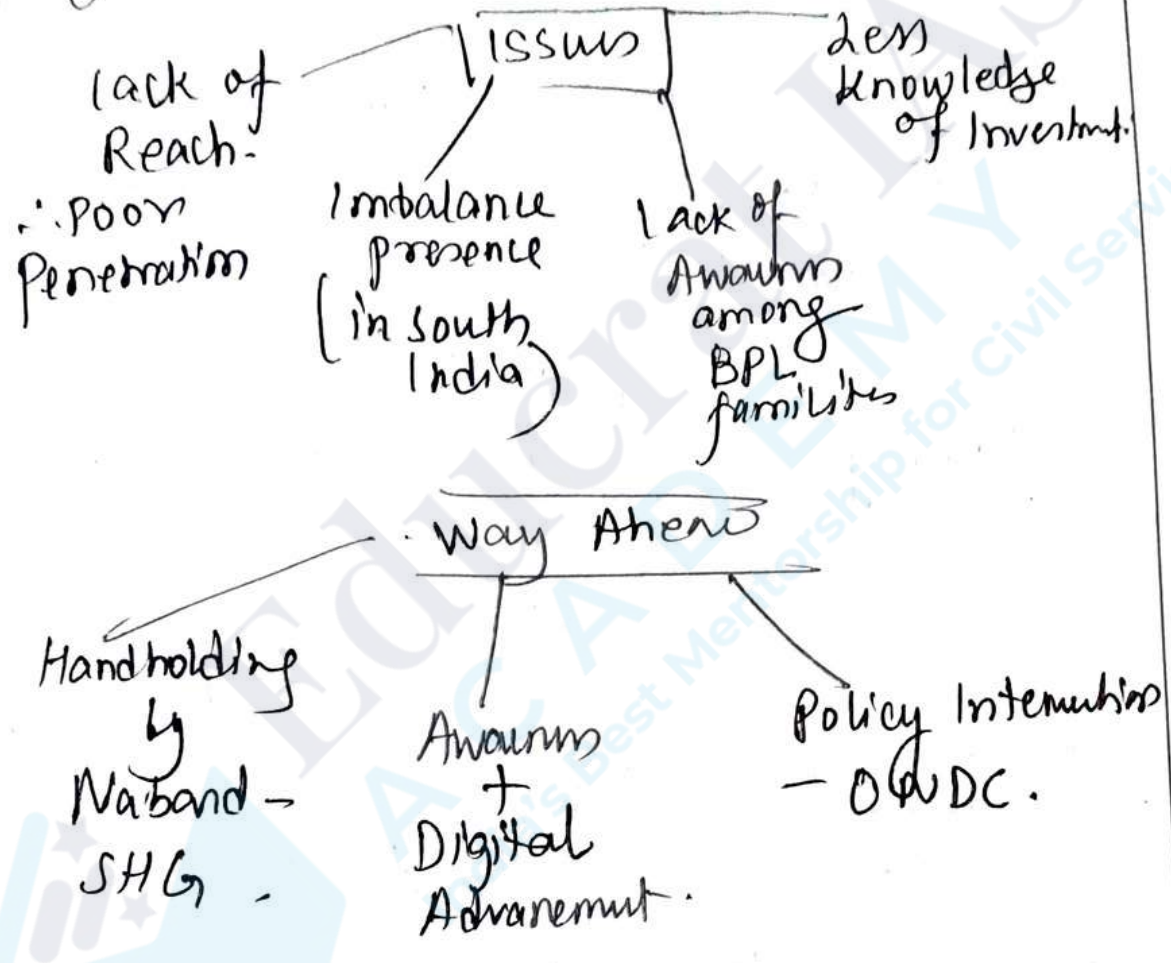 Issues
Lack of
Reach.
∴ Poor
Penetration
Imbalance
presence
(in South
India)
Lack of
Awareness
among
BPL
families
Less
Knowledge
of Investment.
Way Ahead
Handholding
by
Naband -
SHG.
Awareness
+
Digital
Advancement.
Policy Interventions
- ONDC.
Educrat IAS
ACADEMY
India's Best Mentorship for Civil Servi